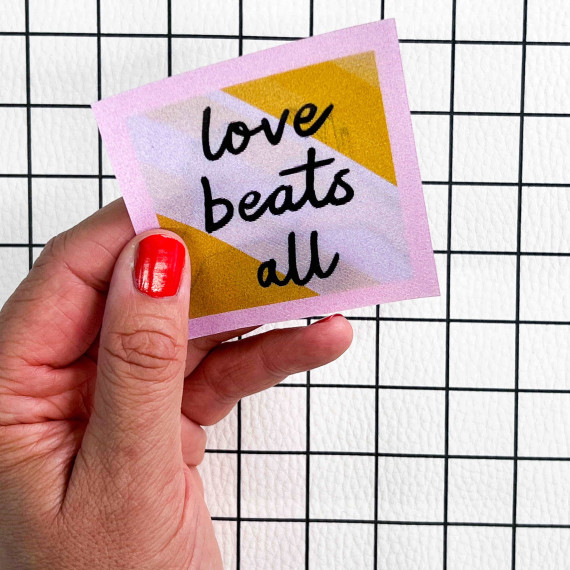 love
beats
all